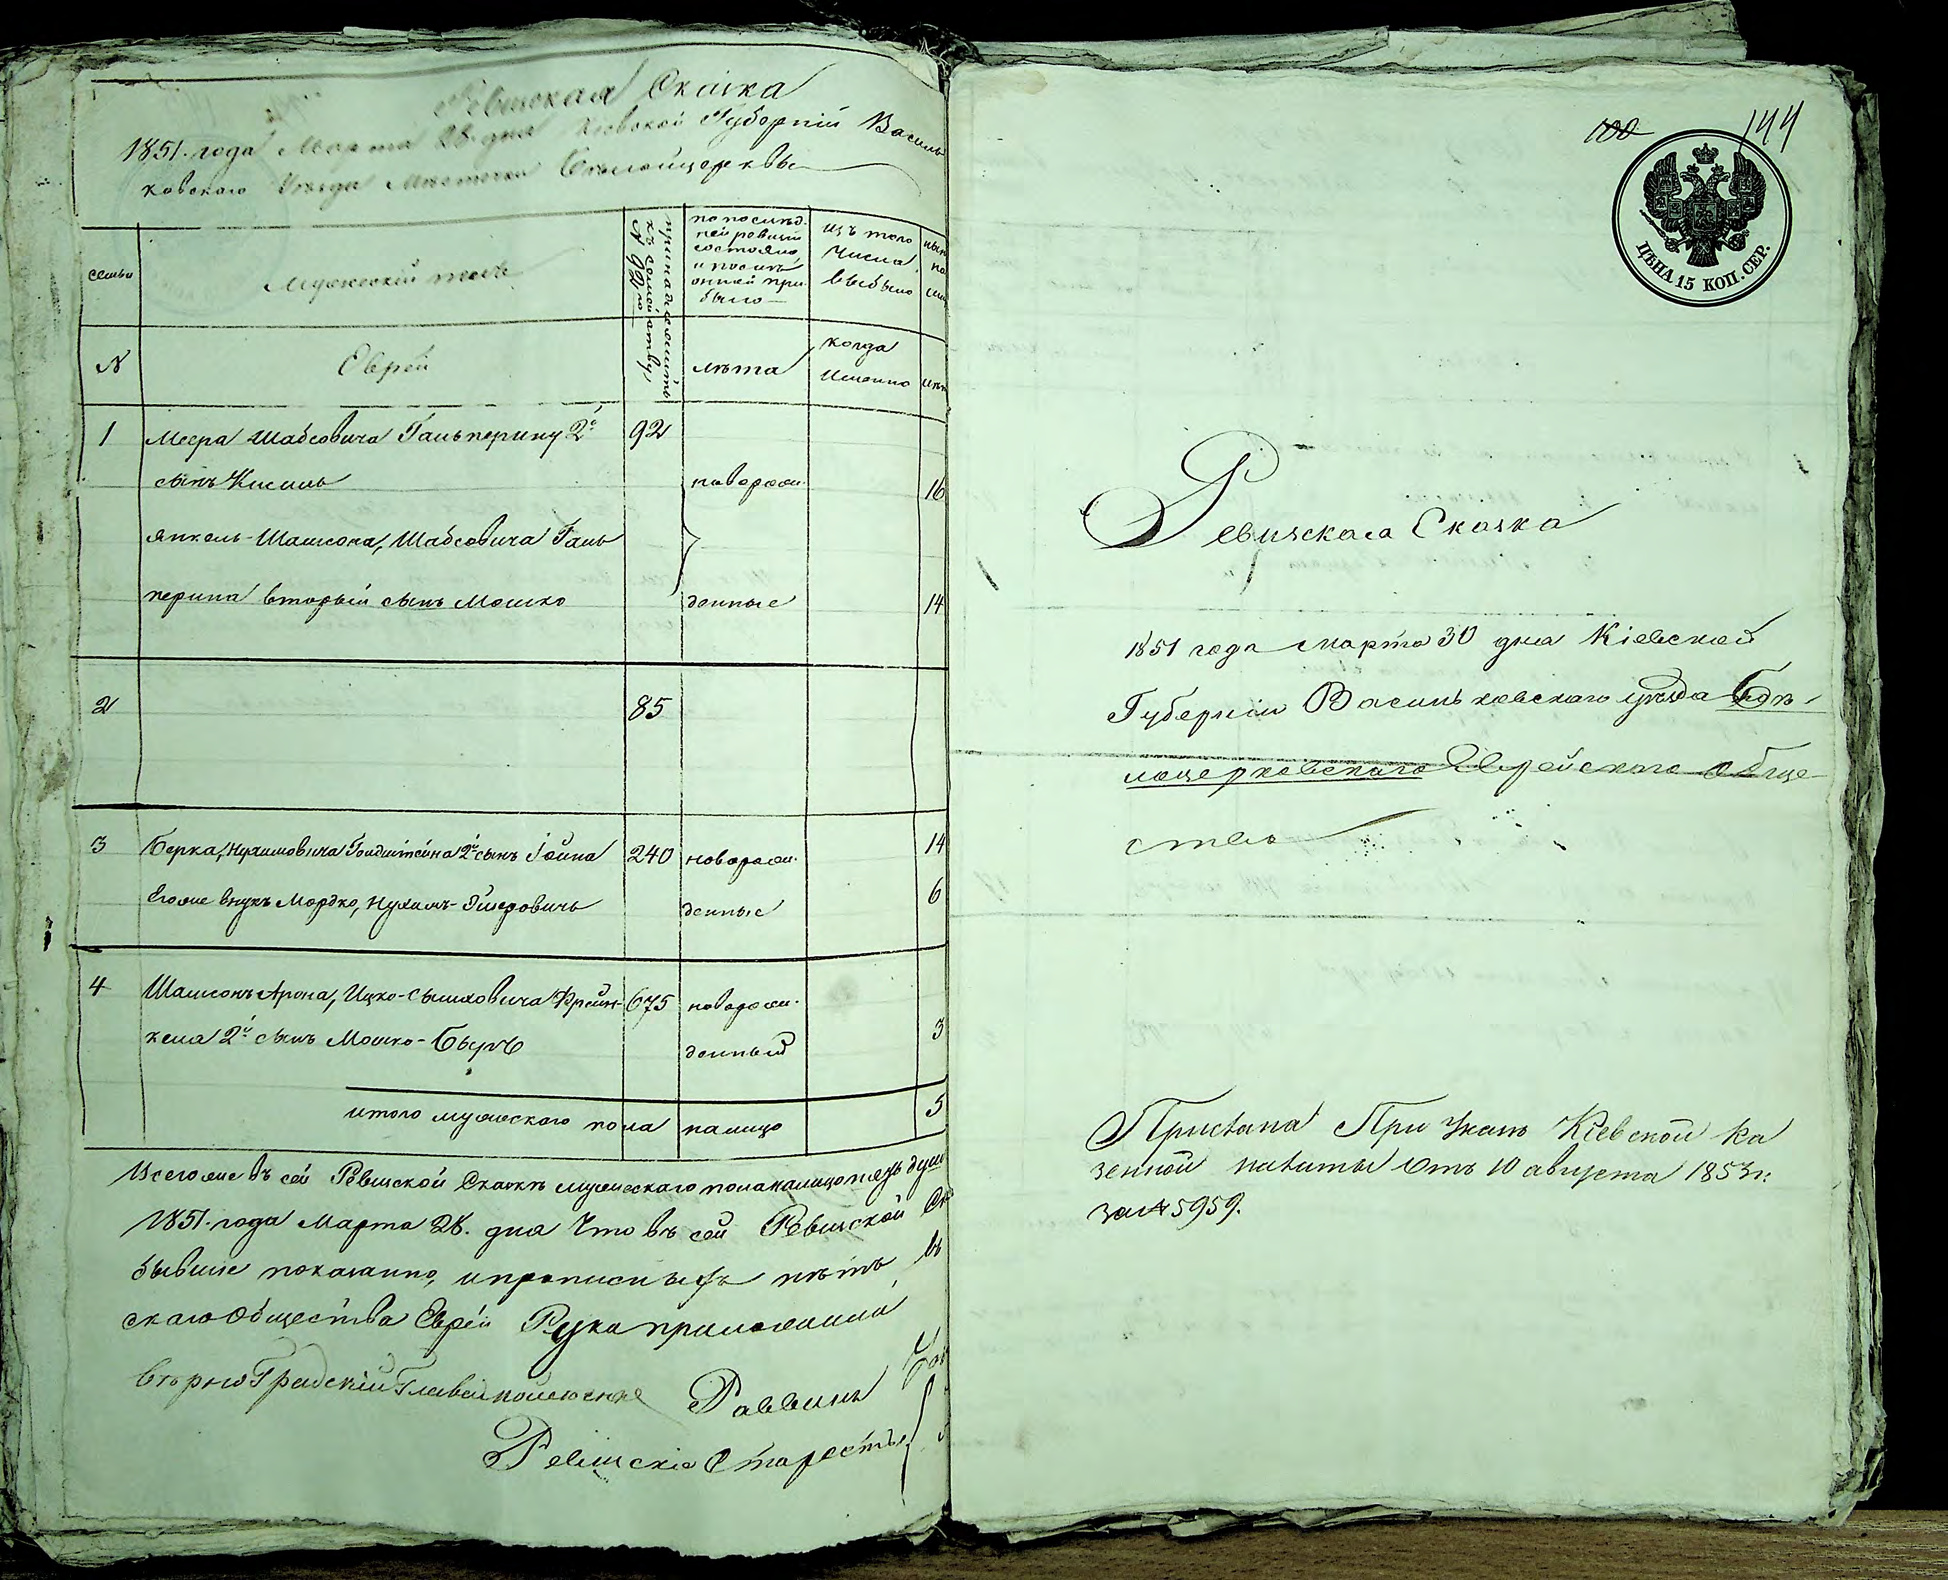 Ревизская Сказка
1851. года Марта 28. дня Кіевской Губерніи Василь
ковскаго Уѣзда Мѣстечка Бѣлойцерквы
семьи
Мужескій полъ
принадлежитъ
къ семейству
№ 92го
по послѣд
ней ревизіи
состояло
и послѣ
оной при
было
изъ того
числа
выбыло
нын
на
лиц
№
Еврей
лѣта
когда
именно
лѣт
1 Меера Шабсовича Гальперину 2й 92
сынъ Кисиль новорож 16
Янкель-Шамсона, Шабсовича Галь
перина вторый сынъ Мошко денные 14
2 85
3 Берка, Нухимовича Голдштейна 2й сынъ Іойна 240 новорож. 14
Егоже внукъ Мордко, Нухимъ-Эшеровичъ денные 6
4 Шамсонъ Арона, Ицко-Сымховича Френ- 675 новорож.
келя 2й сынъ Мошко-Беръ денный 3
итого мужескаго пола налицо 5
Всего же въ сей Ревизской Сказкѣ мужескаго пола налицо пять душ
1851. года Марта 28. дня Что въ сей Ревизской Ск
бывшіе показанно, и прописныхъ нѣтъ, въ
скаго Общества Еврей Руки приложили
Вѣрно Градскій Глава
Раввинъ
Ревизскіе Старосты
100 144
ЦѢНА 15 КОП. СЕР.
Ревизская Сказка
1851 года марта 30 дня Кіевской
Губерніи Васильковскаго уѣзда Бѣ-
лоцерковскаго Еврейскаго обще-
ства
Прислана При Указѣ Кіевской Ка
зенной палаты отъ 10 августа 1853 г.
за № 5959.